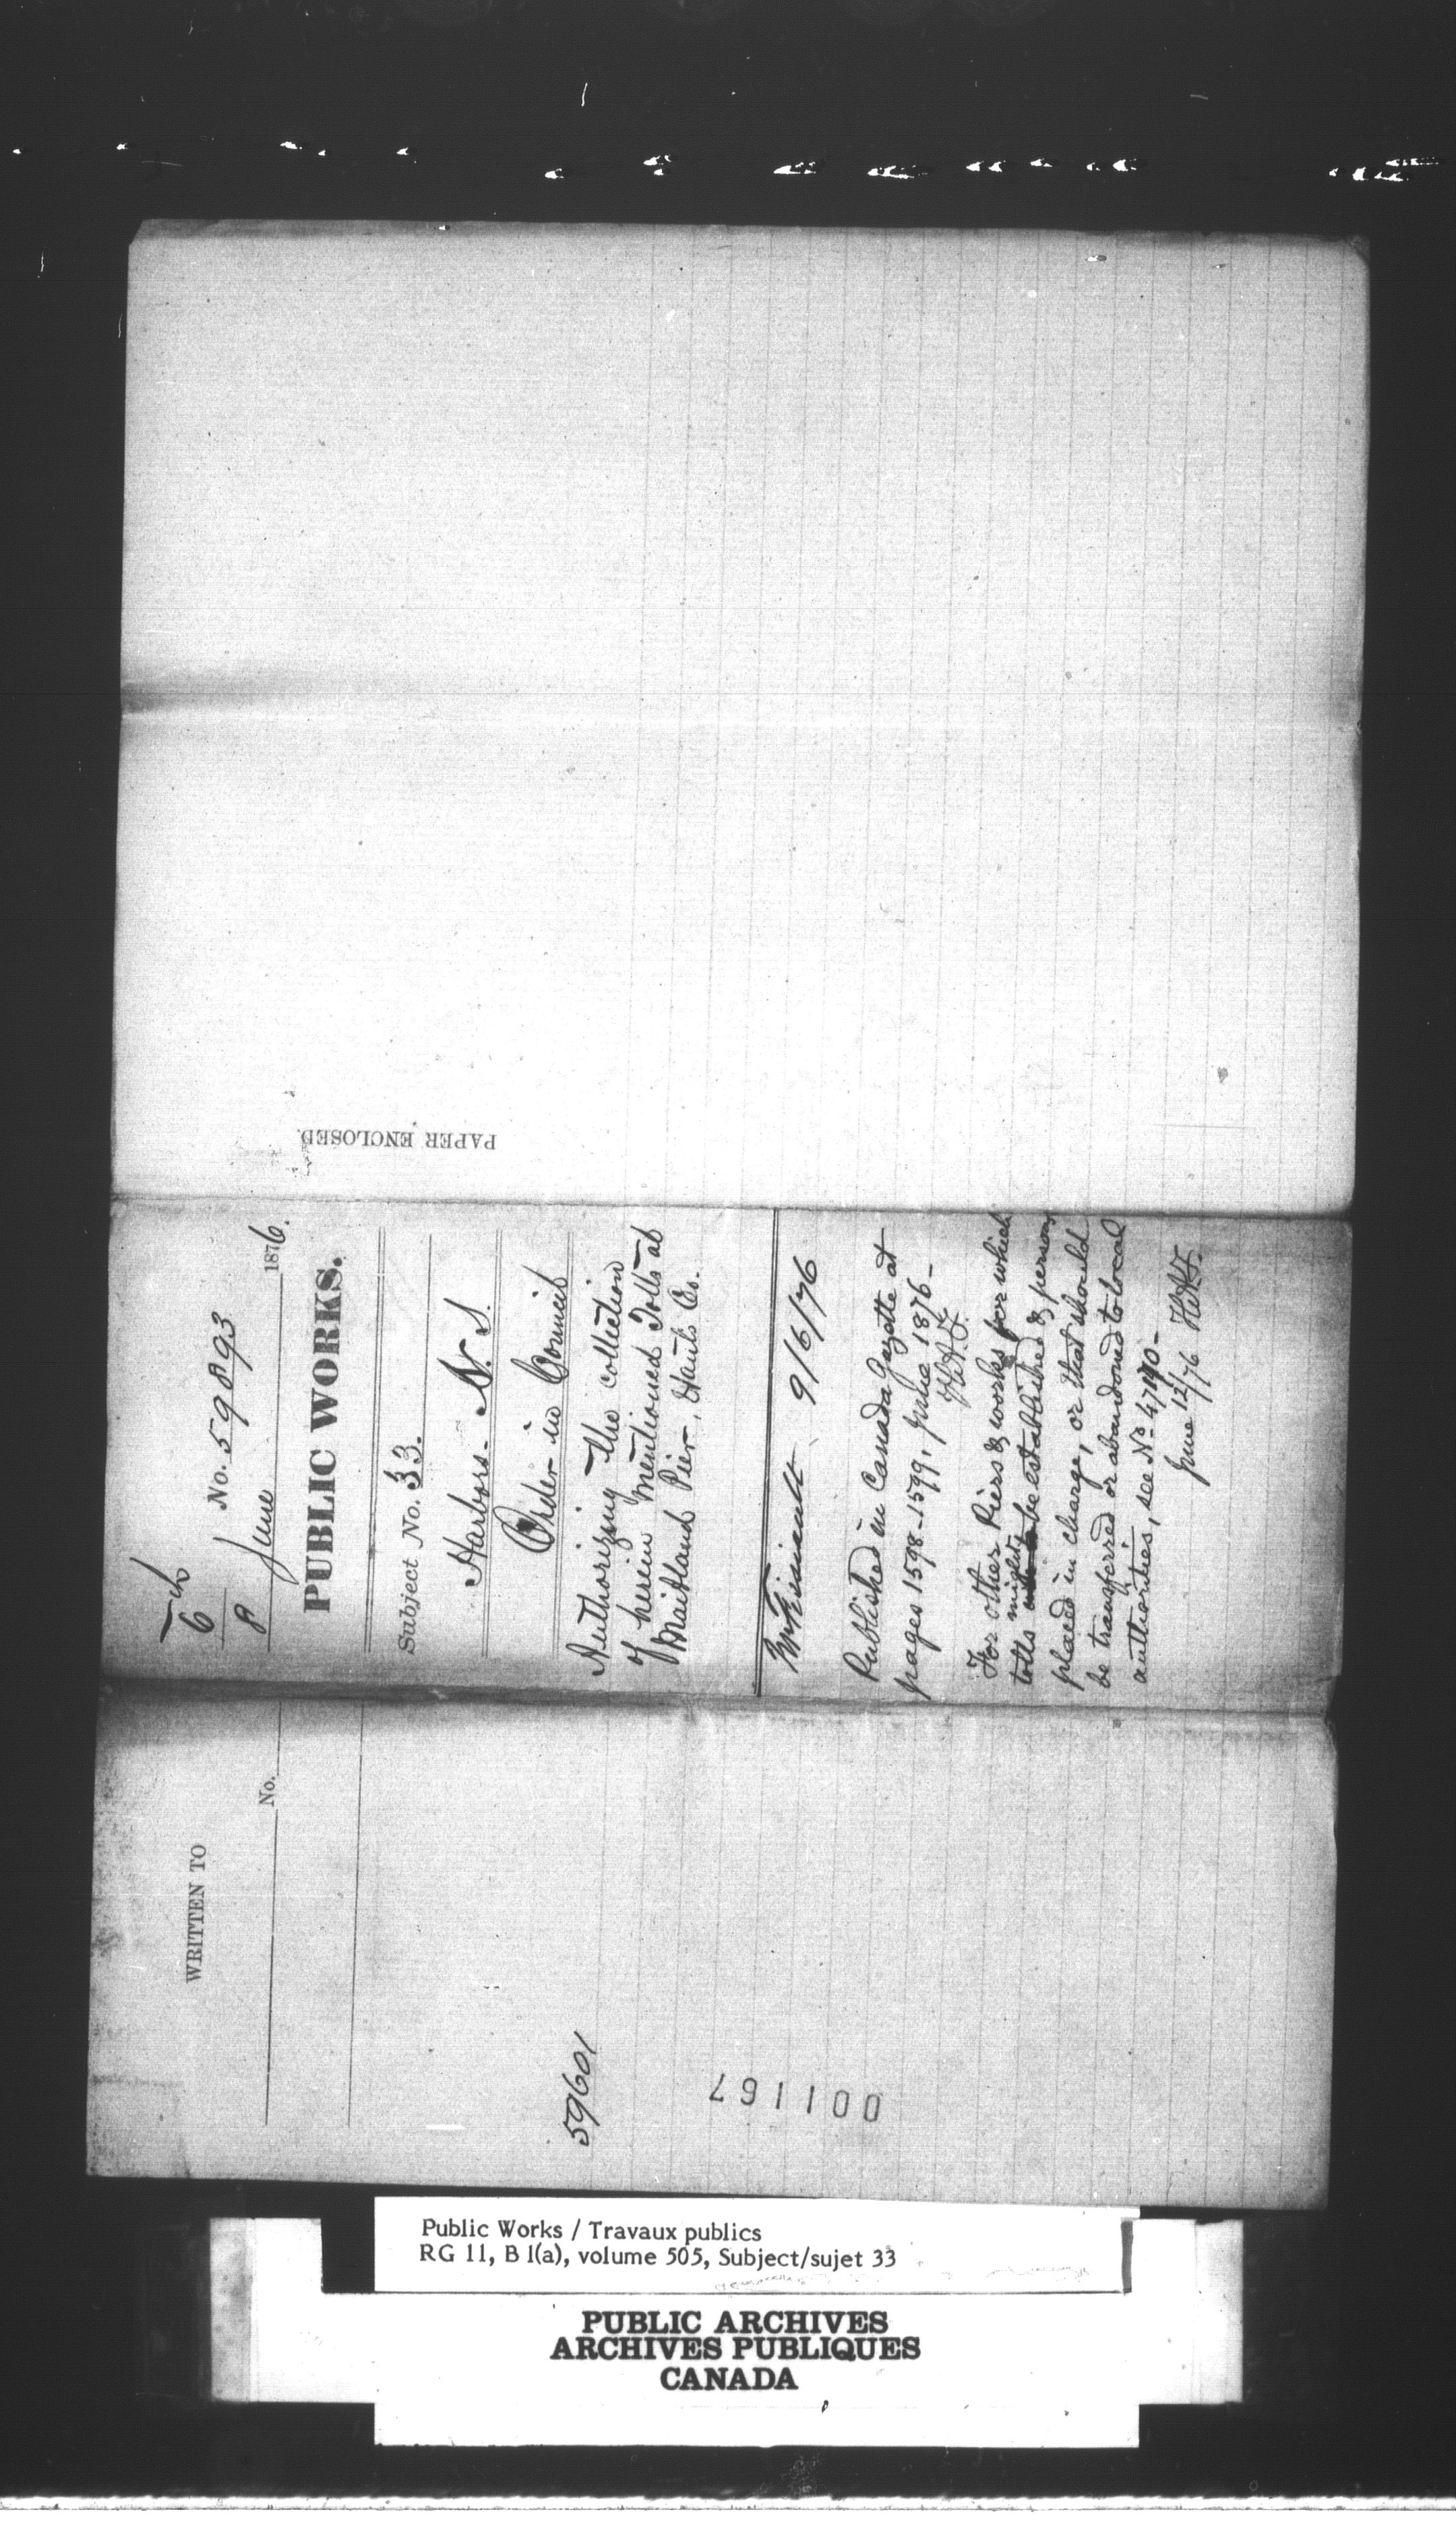 6
8
No. 59893
June 1876.
PUBLIC WORKS.
Subject No. 33.
Harbors - N. S.
Order in Council
Authorizing the collection
of herein mentioned Tolls at
Maitland Pier, Hants Co.
9/6/76
Published in Canada Gazette at
pages 1598-1599, June 1876 -
For other Piers & works for which
tolls might be established & persons
placed in charge, or that should
be transferred or abandoned to local
authorities, see No.
June 12/76
PAPER ENCLOSED.
WRITTEN TO
No.
59601
001167
Public Works / Travaux publics
RG 11, B 1(a), volume 505, Subject/sujet 33
PUBLIC ARCHIVES
ARCHIVES PUBLIQUES
CANADA